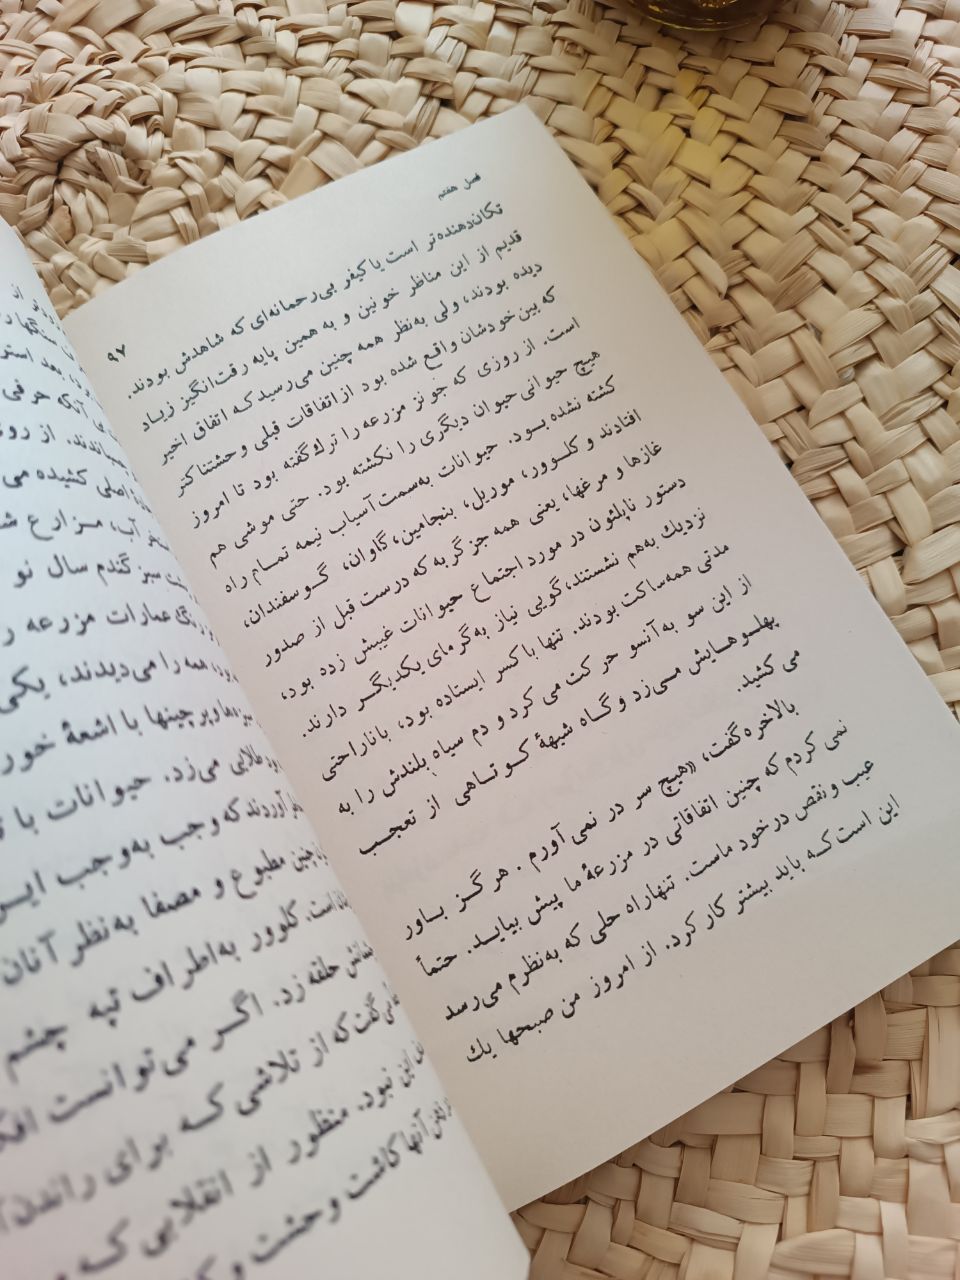 فصل هفتم
۹۷
تکان‌دهنده‌تر است یا کیفر بی‌رحمانه‌ای که شاهدش بودند.
قدیم از این مناظر خونین و به همین پایه رقت‌انگیز زیاد
دیده بودند، ولی به‌نظر همه چنین می‌رسید که اتفاق اخیر
که بین خودشان واقع شده بود از اتفاقات قبلی وحشتناکتر
است. از روزی که جونز مزرعه را ترك گفته بود تا امروز
هیچ حیوانی حیوان دیگری را نکشته بود. حتی موشی هم
کشته نشده بود. حیوانات به‌سمت آسیاب نیمه تمام راه
افتادند و کلوور، موریل، بنجامین، گاوان، گوسفندان،
غازها و مرغها، یعنی همه جز گربه که درست قبل از صدور
دستور ناپلئون در مورد اجتماع حیوانات غیبش زده بود،
نزدیك به‌هم نشستند، گویی نیاز به گرمای یکدیگر دارند.
مدتی همه ساکت بودند. تنها باکسر ایستاده بود، با ناراحتی
از این سو به آنسو حرکت می کرد و دم سیاه بلندش را به
پهلوهایش می‌زد و گاه شیههٔ کوتاهی از تعجب
می کشید.
بالاخره گفت، «هیچ سر در نمی آورم. هرگز باور
نمی کردم که چنین اتفاقاتی در مزرعهٔ ما پیش بیاید. حتماً
عیب و نقص در خود ماست. تنها راه حلی که به‌نظرم می‌رسد
این است که باید بیشتر کار کرد. از امروز من صبحها یك
آنکه حرفی
از روی
اصلی کشیده می
آب، مزارع
سبز گندم سال نو
عمارات مزرعه
همه را می‌دیدند، یکی
پرچینها با اشعهٔ خور
طلایی می‌زد. حیوانات با
آوردند که وجب به‌وجب این
چنین مطبوع و مصفا به‌نظر آنان
کلوور به‌اطراف تپه چشم
حلقه زد. اگر می‌توانست
گفت که از تلاشی که برای راندن
این نبود. منظور از انقلابی که
آنها کاشت وحشت و